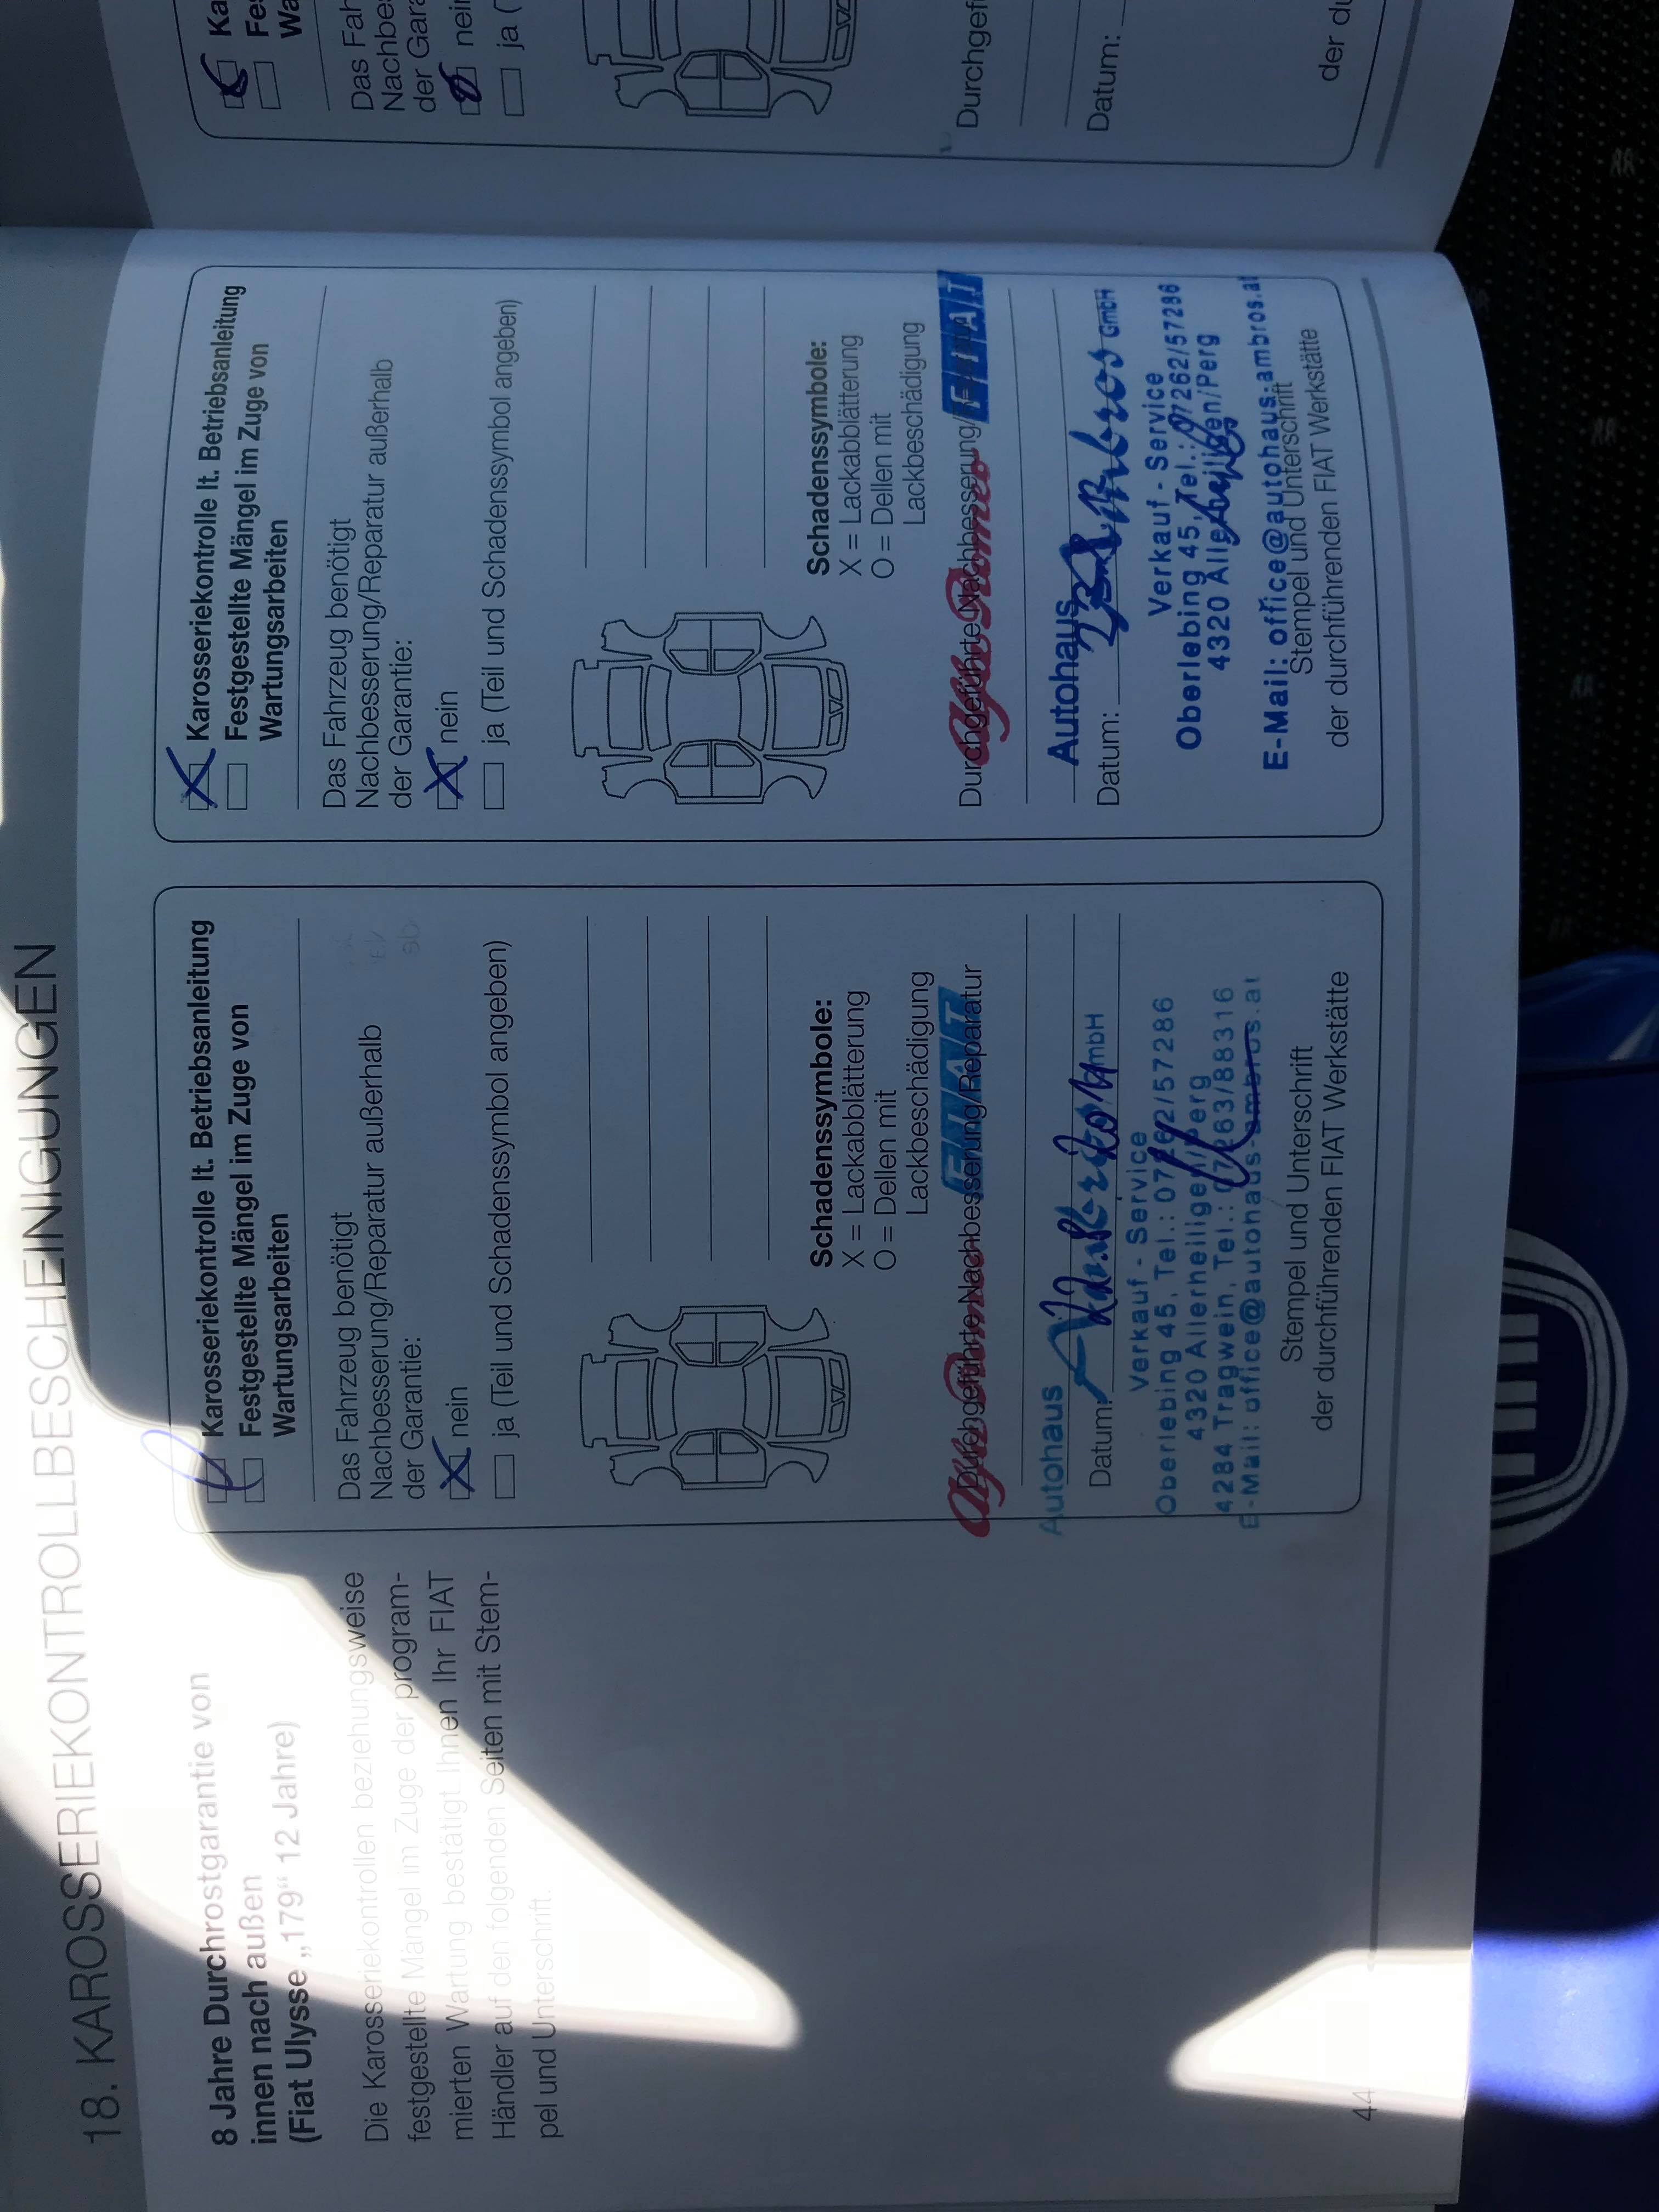 18. KAROSSERIEKONTROLLBESCHEINIGUNGEN
8 Jahre Durchrostgarantie von
innen nach außen
(Fiat Ulysse „179“ 12 Jahre)
Die Karosseriekontrollen beziehungsweise
festgestellte Mängel im Zuge der program-
mierten Wartung bestätigt Ihnen Ihr FIAT
Händler auf den folgenden Seiten mit Stem-
pel und Unterschrift.
44
Karosseriekontrolle lt. Betriebsanleitung
Festgestellte Mängel im Zuge von
Wartungsarbeiten
Das Fahrzeug benötigt
Nachbesserung/Reparatur außerhalb
der Garantie:
nein
ja (Teil und Schadenssymbol angeben)
Schadenssymbole:
X = Lackabblätterung
O = Dellen mit
Lackbeschädigung
Durchgeführte Nachbesserung/Reparatur
Alfa Romeo FIAT
Autohaus GmbH
Datum:
Verkauf - Service
Oberlebing 45, Tel.: 07262/57286
4320 Allerheiligen/Perg
4284 Tragwein, Tel.: 07263/88316
E-Mail: office@autohaus-ambros.at
Stempel und Unterschrift
der durchführenden FIAT Werkstätte
Karosseriekontrolle lt. Betriebsanleitung
Festgestellte Mängel im Zuge von
Wartungsarbeiten
Das Fahrzeug benötigt
Nachbesserung/Reparatur außerhalb
der Garantie:
nein
ja (Teil und Schadenssymbol angeben)
Schadenssymbole:
X = Lackabblätterung
O = Dellen mit
Lackbeschädigung
Durchgeführte Nachbesserung/
Alfa Romeo FIAT
Autohaus Ambros GmbH
Datum:
Verkauf - Service
Oberlebing 45, Tel.: 07262/57286
4320 Allerheiligen/Perg
E-Mail: office@autohaus-ambros.at
Stempel und Unterschrift
der durchführenden FIAT Werkstätte
Ka
Fes
Wa
Das Fah
Nachbes
der Gara
nein
ja (
Durchgef
Datum:
der du